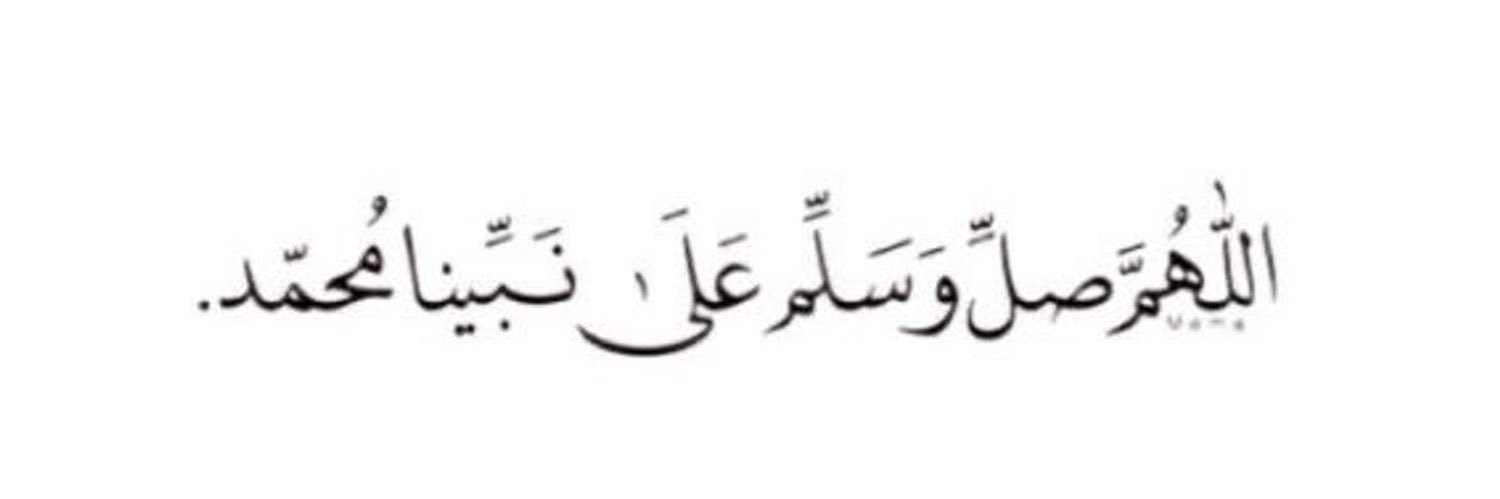 اللَّهُمَّ صلِّ وَسَلِّم عَلَىٰ نَبِّينا مُحمّد.